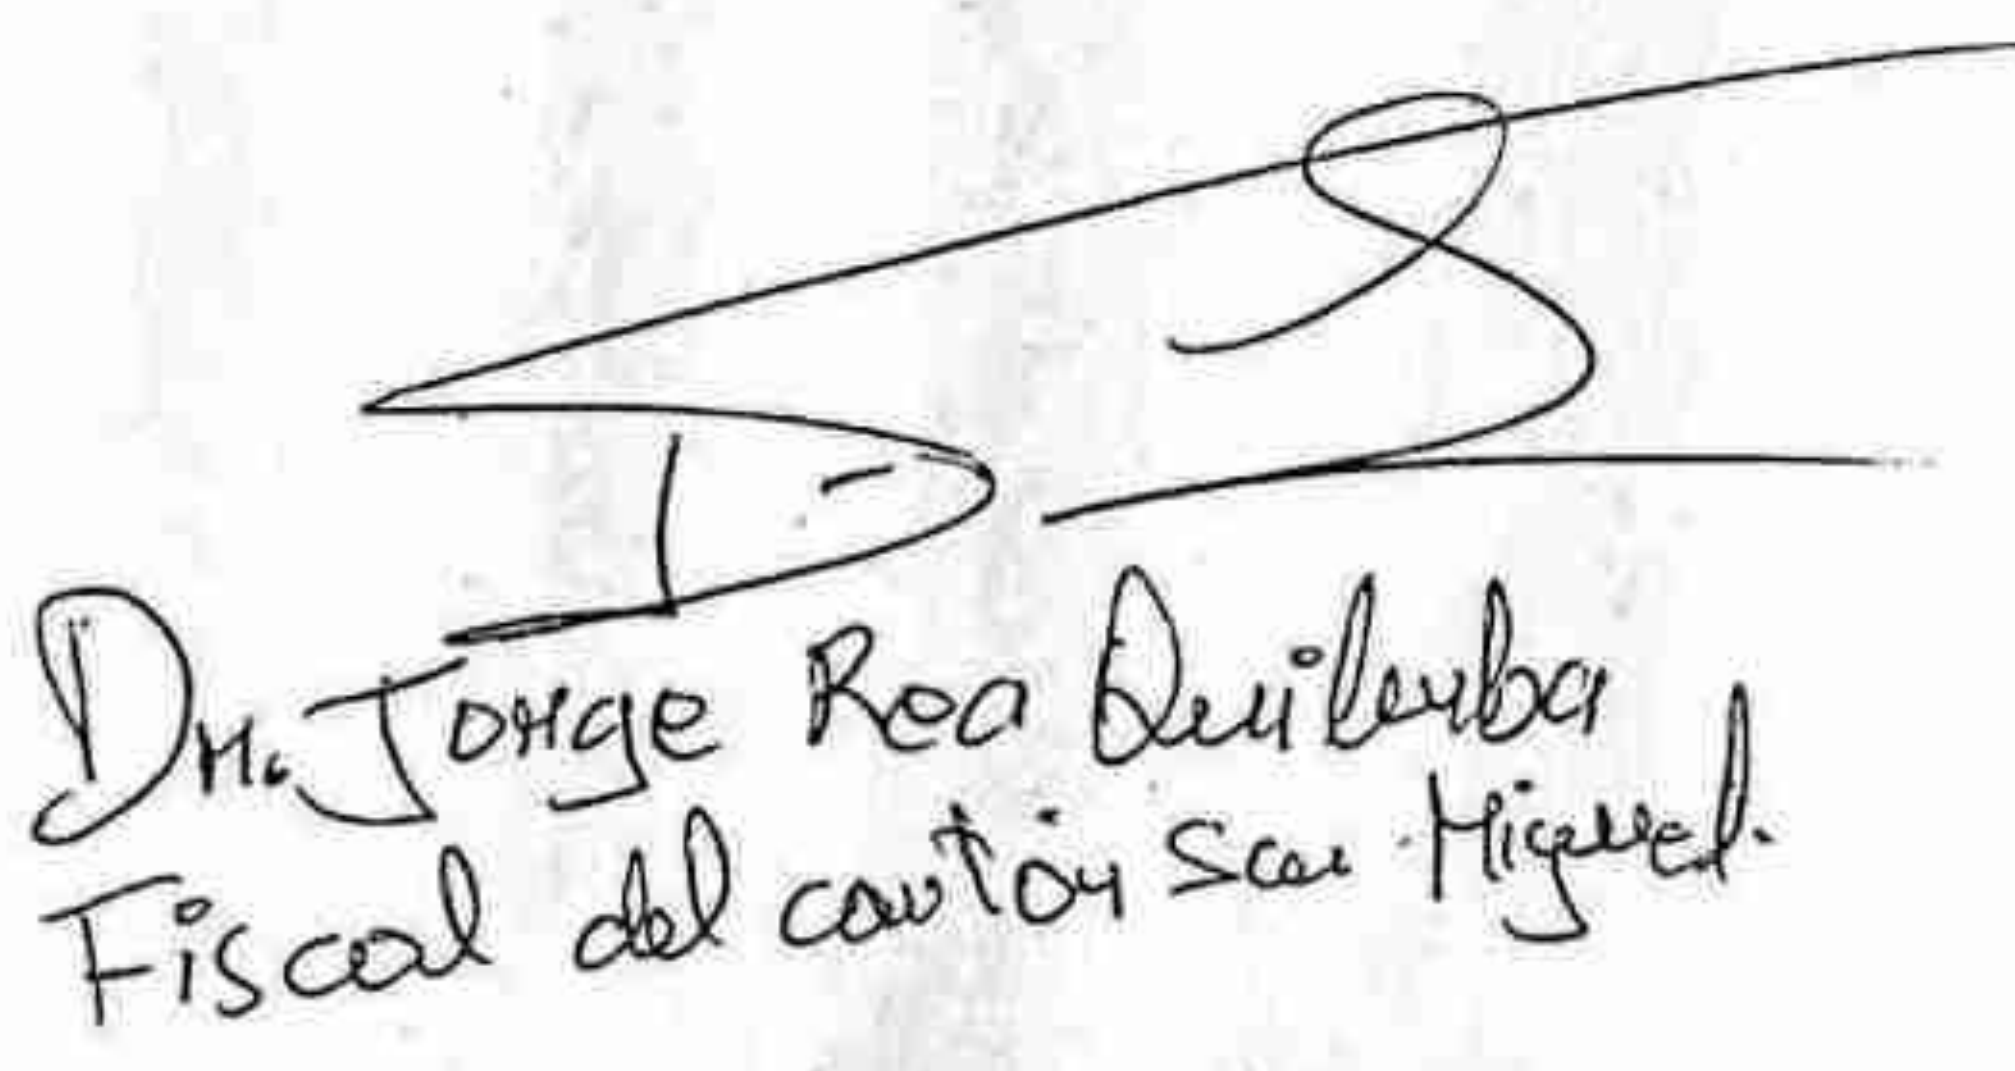 Dr. Jorge Rea Quilumba
Fiscal del cantón San Miguel.